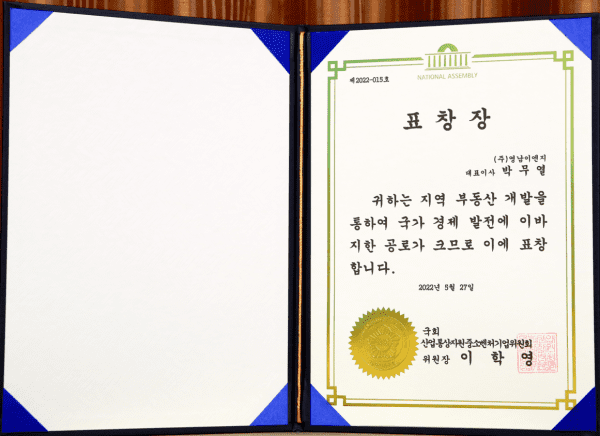 NATIONAL ASSEMBLY
제2022-015호
표 창 장
(주)영남이앤지
대표이사 박 무 열
귀하는 지역 부동산 개발을
통하여 국가 경제 발전에 이바
지한 공로가 크므로 이에 표창
합니다.
2022년 5월 27일
국회
산업통상자원중소벤처기업위원회
위원장 이 학 영